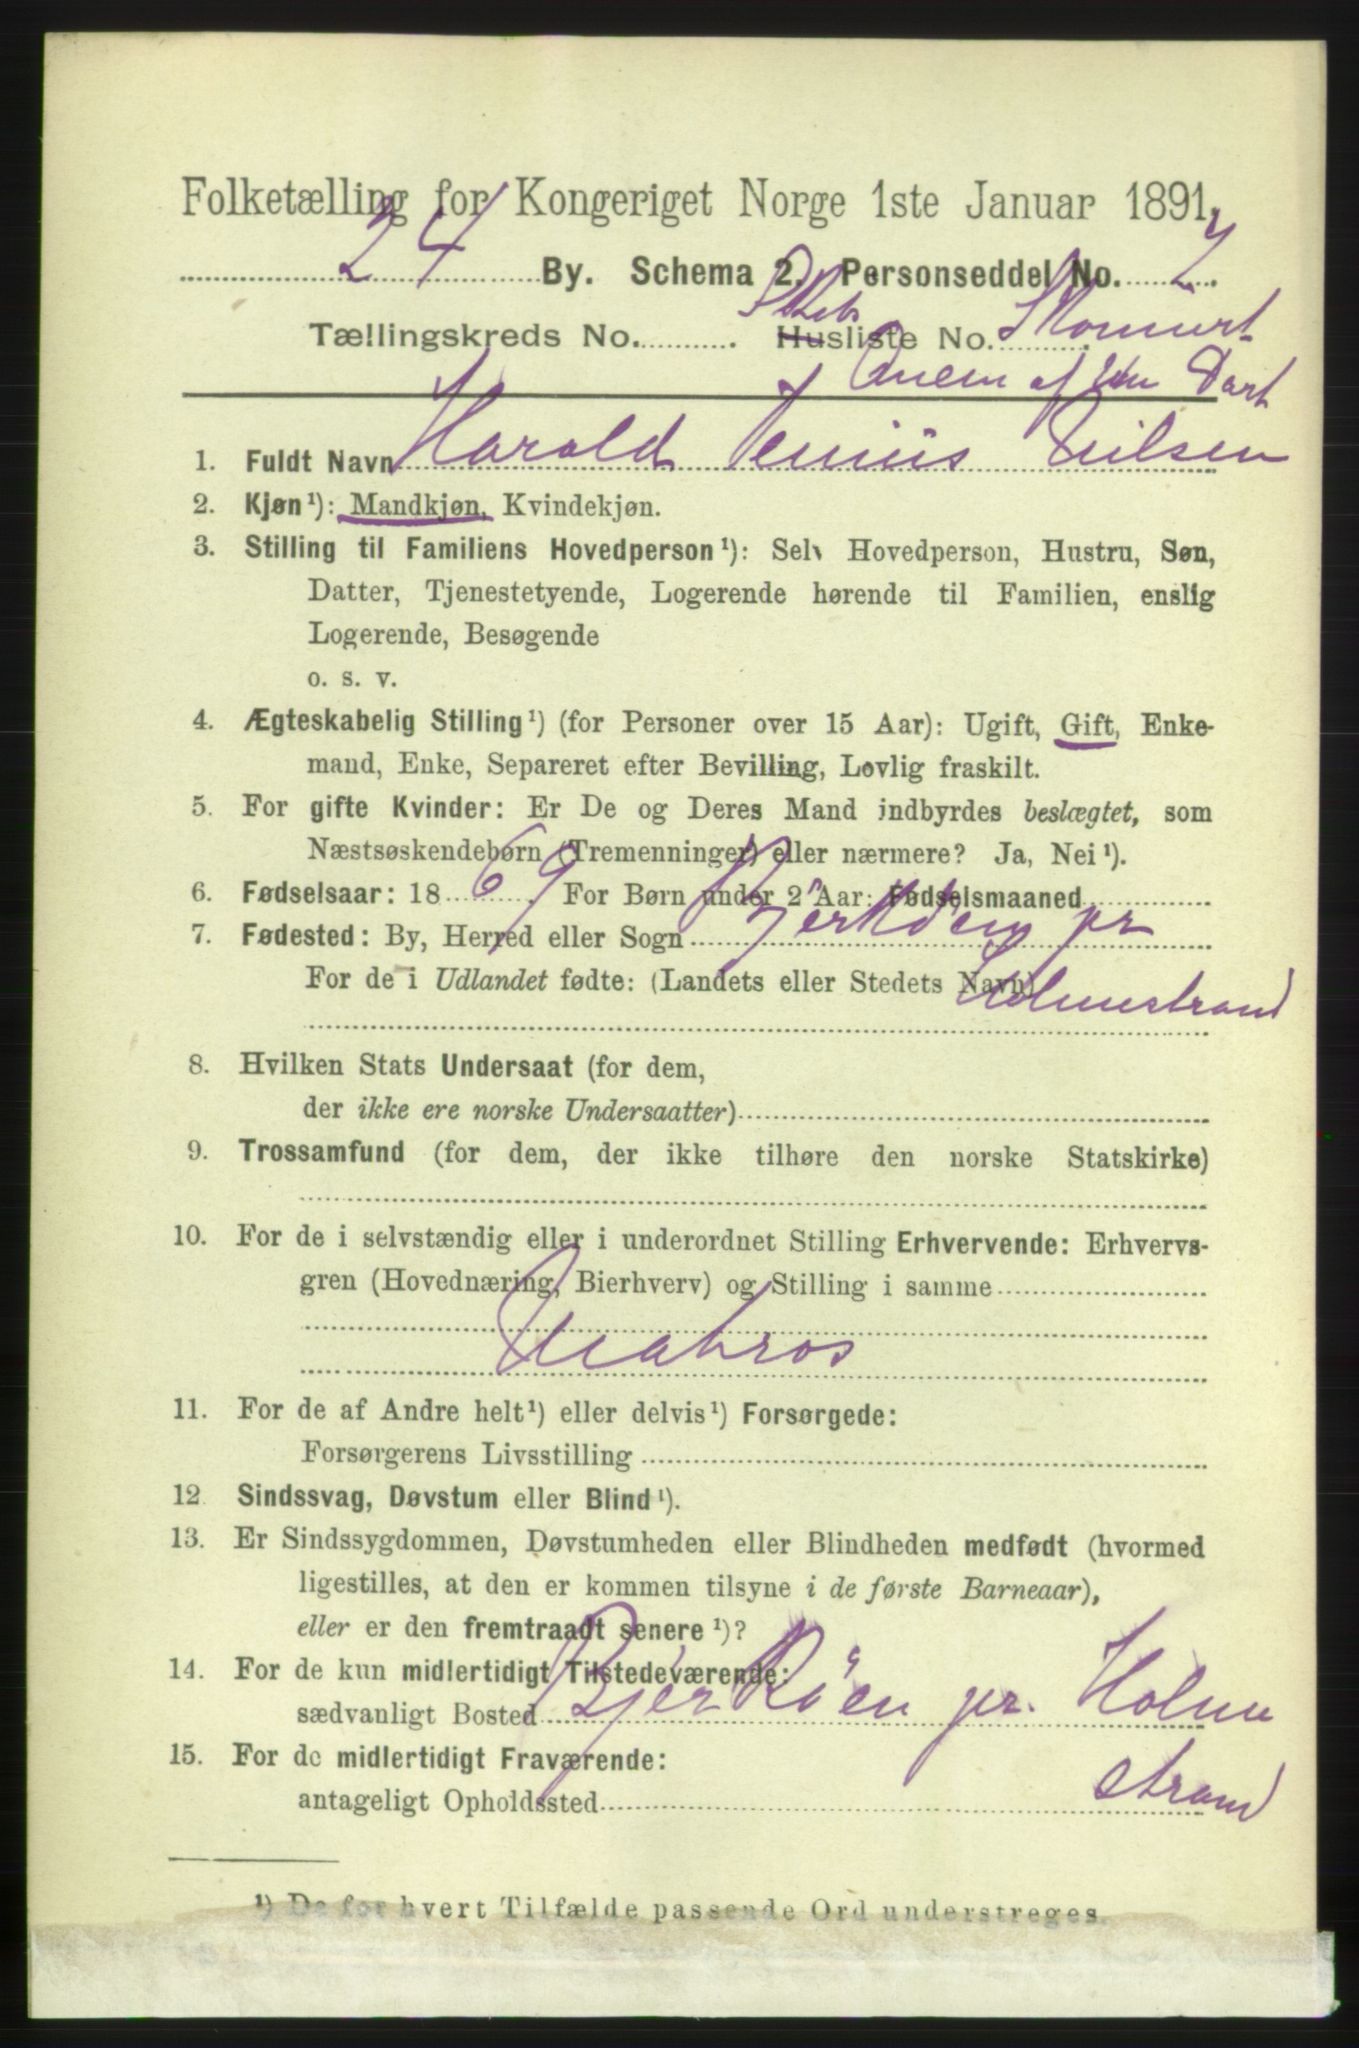 Folketælling for Kongeriget Norge 1ste Januar 1891.
24 By. Schema 2. Personseddel No. 7.
Tællingskreds No. . Husliste No.
af Dart
1. Fuldt Navn Harold Nilsen
2. Kjøn¹): Mandkjøn, Kvindekjøn.
3. Stilling til Familiens Hovedperson¹): Selv Hovedperson, Hustru, Søn,
Datter, Tjenestetyende, Logerende hørende til Familien, enslig
Logerende, Besøgende
o. s. v.
4. Ægteskabelig Stilling¹) (for Personer over 15 Aar): Ugift, Gift, Enke-
mand, Enke, Separeret efter Bevilling, Lovlig fraskilt.
5. For gifte Kvinder: Er De og Deres Mand indbyrdes beslægtet, som
Næstsøskendebørn (Tremenninger) eller nærmere? Ja, Nei¹).
6. Fødselsaar: 1869. For Børn under 2 Aar: Fødselsmaaned
7. Fødested: By, Herred eller Sogn Bjerköen pr
For de i Udlandet fødte: (Landets eller Stedets Navn) Holmestrand
8. Hvilken Stats Undersaat (for dem,
der ikke ere norske Undersaatter)
9. Trossamfund (for dem, der ikke tilhøre den norske Statskirke)
10. For de i selvstændig eller i underordnet Stilling Erhvervende: Erhvervs-
gren (Hovednæring, Bierhverv) og Stilling i samme
Matros
11. For de af Andre helt¹) eller delvis¹) Forsørgede:
Forsørgerens Livsstilling
12. Sindssvag, Døvstum eller Blind¹).
13. Er Sindssygdommen, Døvstumheden eller Blindheden medfødt (hvormed
ligestilles, at den er kommen tilsyne i de første Barneaar),
eller er den fremtraadt senere¹)?
14. For de kun midlertidigt Tilstedeværende:
sædvanligt Bosted Bjerköen pr. Holme
15. For de midlertidigt Fraværende:
strand
antageligt Opholdssted
¹) De for hvert Tilfælde passende Ord understreges.